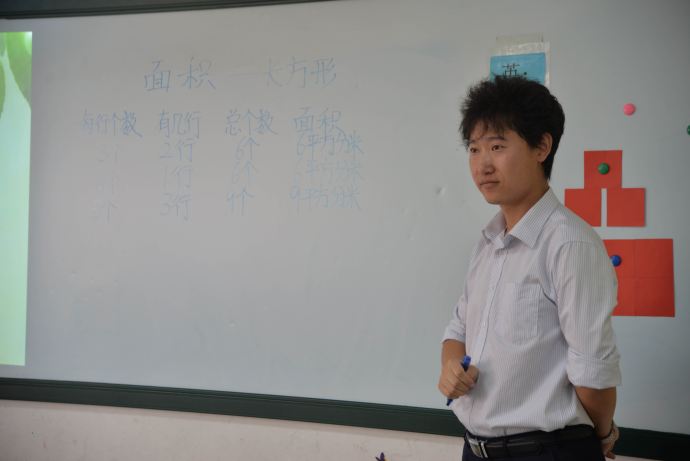 面积 长方形
英:
每行个数 有几行 总个数 面积
3个 2行 6个 6平方分米
1行 6个 6平方分米
3个 3行 9个 9平方分米